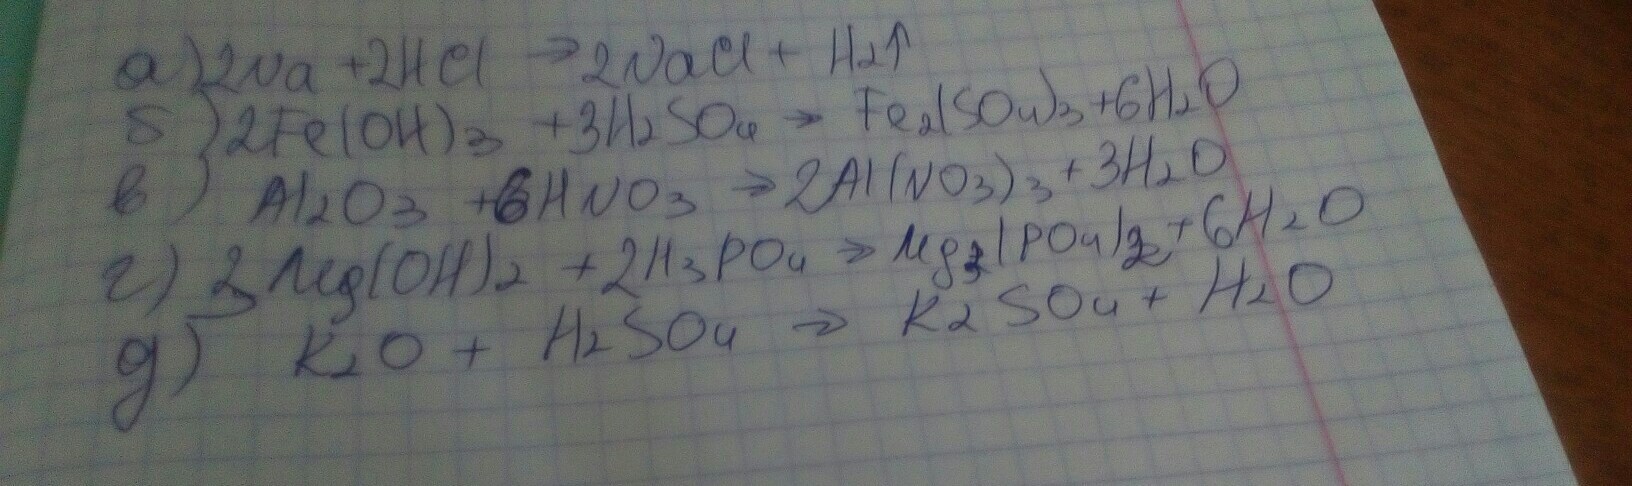 а) 2Na + 2HCl → 2NaCl + H2↑
б) 2Fe(OH)3 + 3H2SO4 → Fe2(SO4)3 + 6H2O
в) Al2O3 + 6HNO3 → 2Al(NO3)3 + 3H2O
г) 3Mg(OH)2 + 2H3PO4 → Mg3(PO4)2 + 6H2O
д) K2O + H2SO4 → K2SO4 + H2O